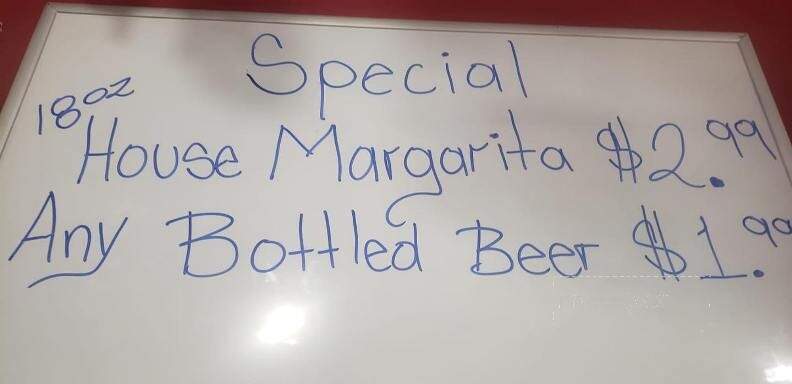 Special
18oz
House Margarita $2.99
Any Bottled Beer $1.99